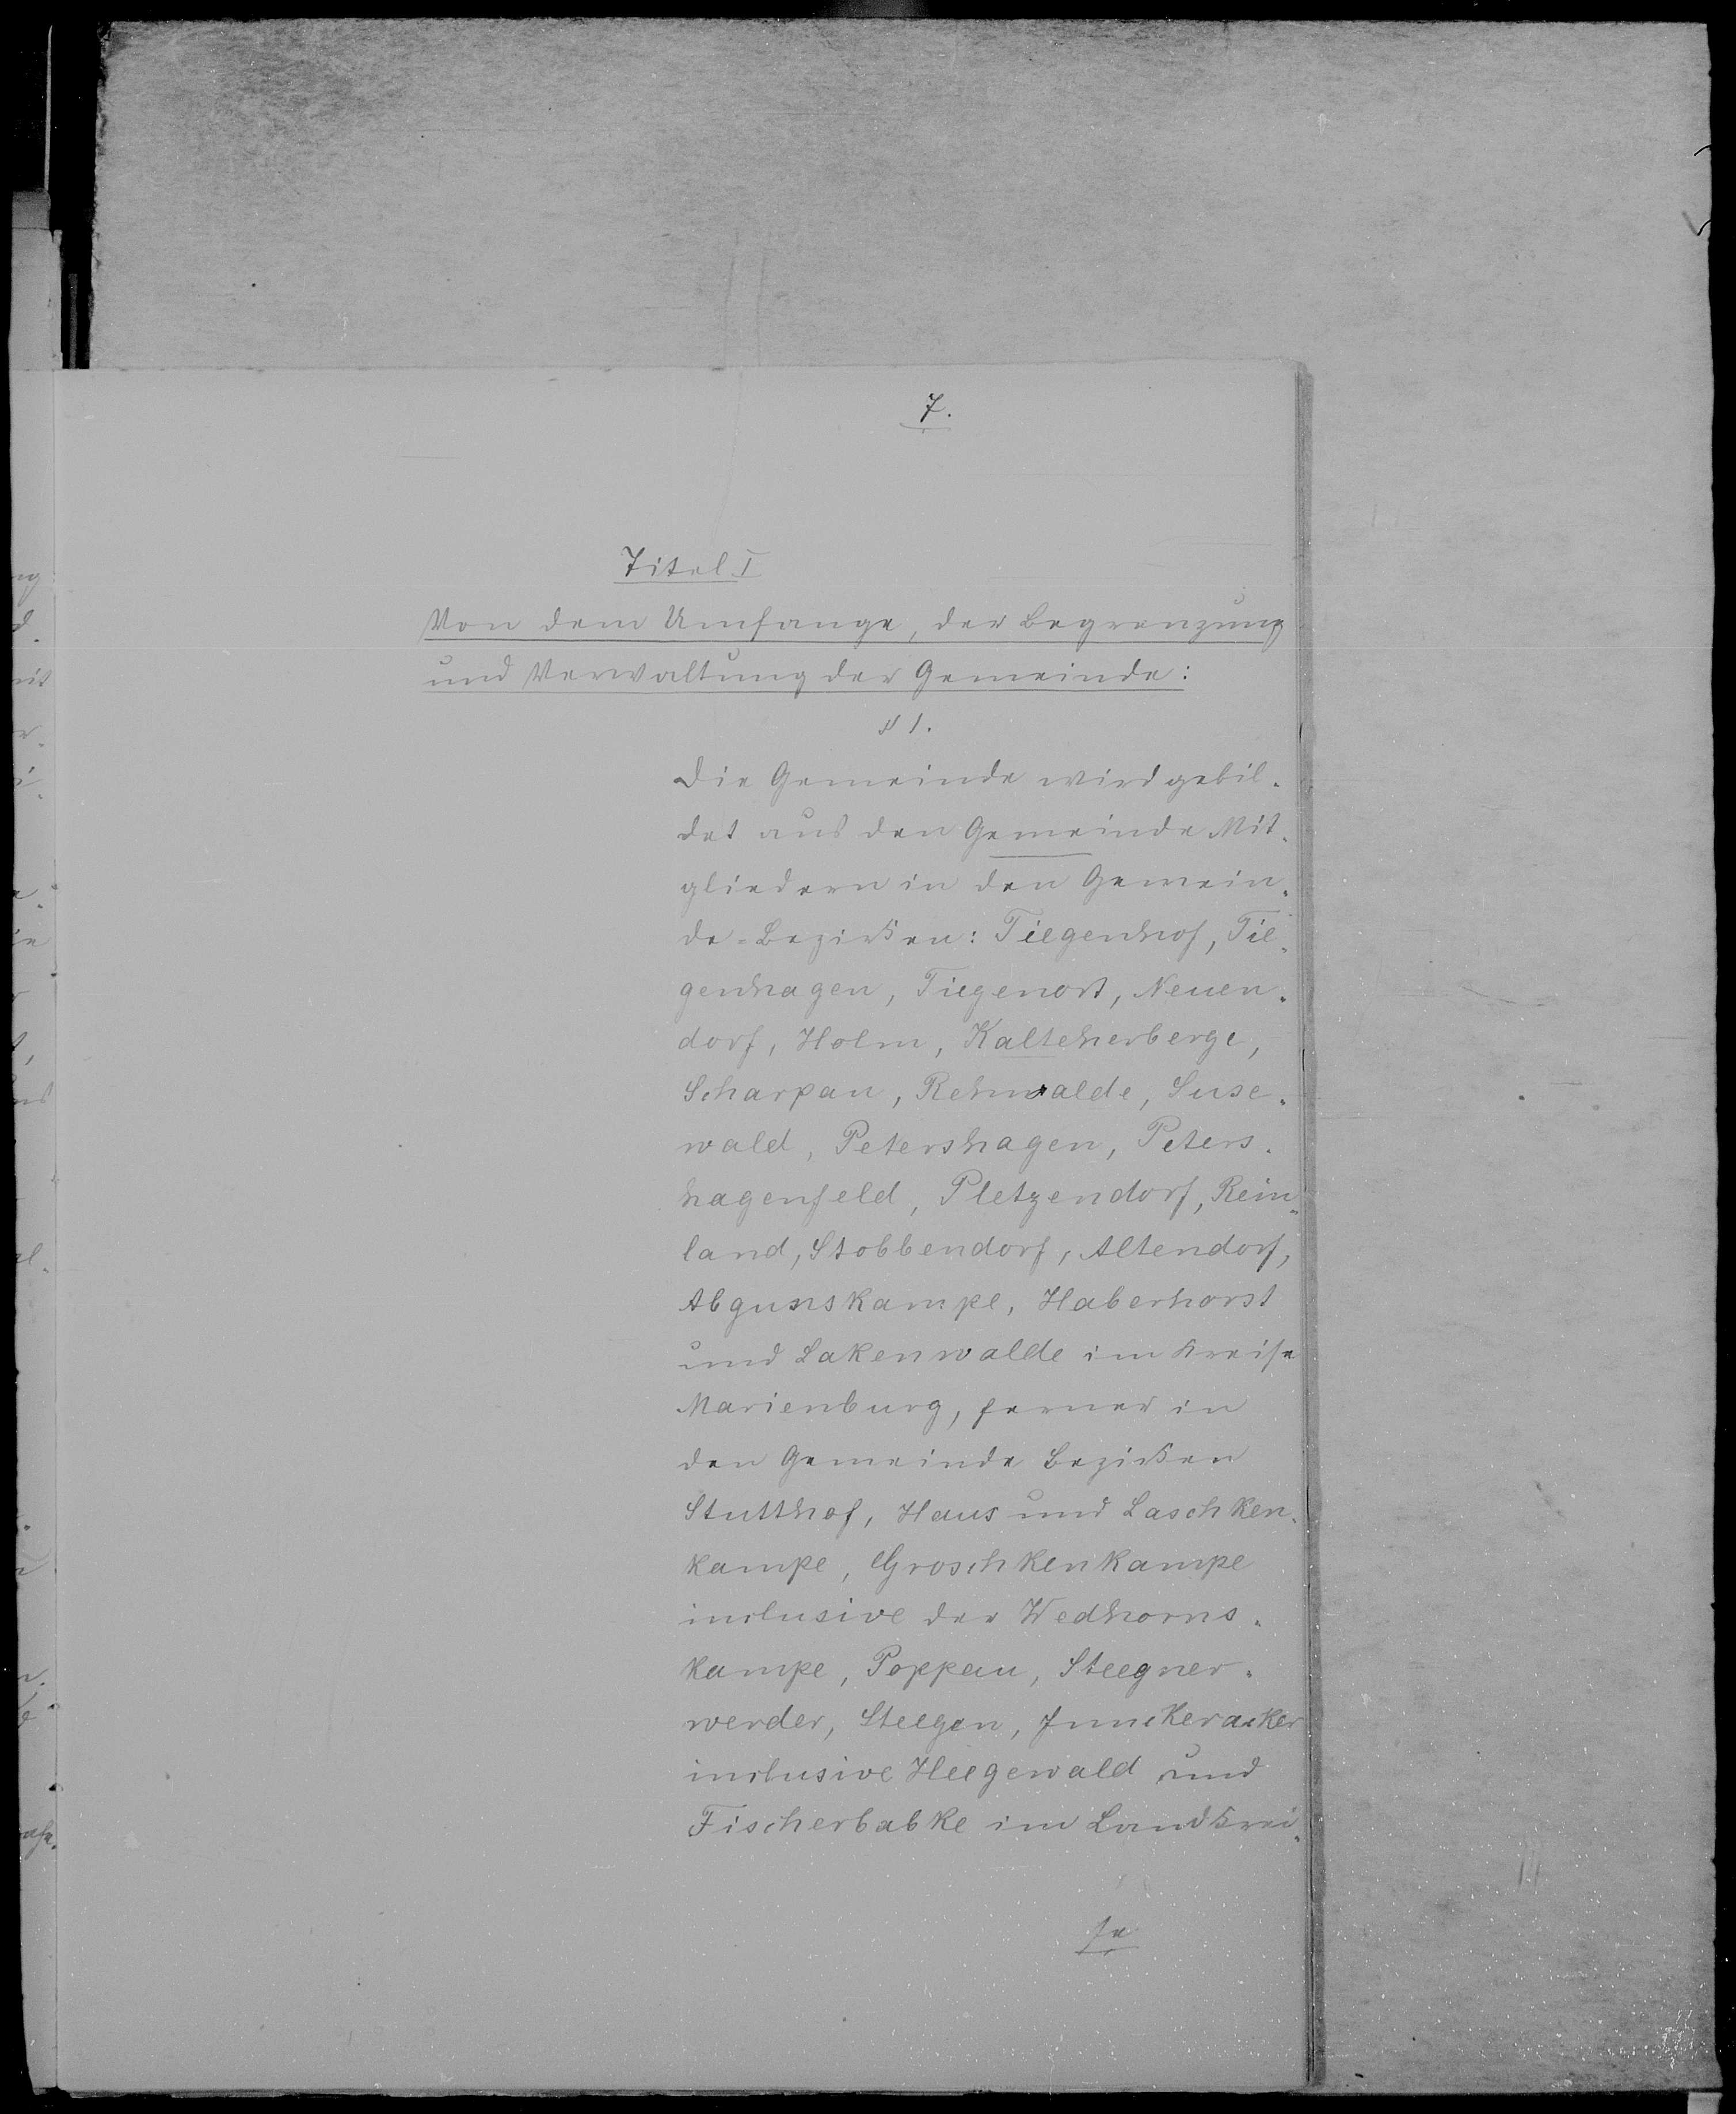 7.
Titel I
Von dem Umfange, der Begrenzung
und Verwaltung der Gemeinde:
§ 1.
Die Gemeinde wird gebil-
det aus den Gemeinde Mit-
gliedern in den Gemein-
de-Bezirken: Tiegenhof, Tie-
genhagen, Tiegenort, Neuen-
dorf, Holm, Kalteherberge,
Scharpau, Rehwalde, Suse-
wald, Petershagen, Peters-
hagenfeld, Pletzendorf, Rein-
land, Stobbendorf, Altendorf,
Abgunskampe, Haberhorst
und Lakenwalde im Kreise
Marienburg, ferner in
den Gemeinde Bezirken
Stutthof, Haus und Laschken-
kampe, Groschkenkampe
inclusive der Wedhorns-
kampe, Poppau, Steegner-
werder, Steegen, Junckeracker
inclusive Heegewald und
Fischerbabke im Landkrei-
se